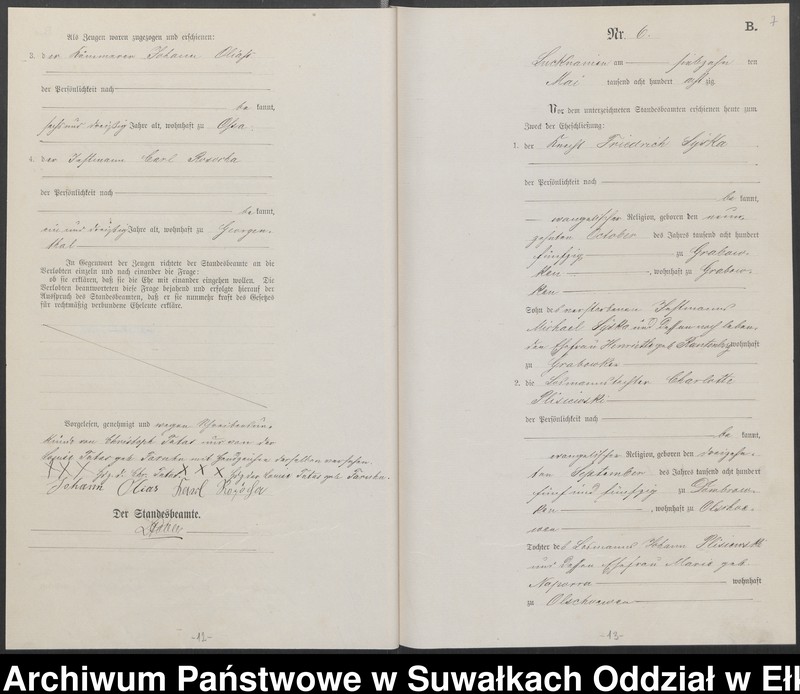 Als Zeugen waren zugezogen und erschienen:
3. der Kämmerer Johann Olias
der Persönlichkeit nach
be kannt,
sechs und dreißig Jahre alt, wohnhaft zu Ossa.
4. der Instmann Carl
der Persönlichkeit nach
be kannt,
ein und dreißig Jahre alt, wohnhaft zu Georgen-
thal
In Gegenwart der Zeugen richtete der Standesbeamte an die
Verlobten einzeln und nach einander die Frage:
ob sie erklären, daß sie die Ehe mit einander eingehen wollen. Die
Verlobten beantworteten diese Frage bejahend und erfolgte hierauf der
Ausspruch des Standesbeamten, daß er sie nunmehr kraft des Gesetzes
für rechtmäßig verbundene Eheleute erkläre.
Vorgelesen, genehmigt und wegen Schreibensun-
kunde von Christoph nur von der
geb. mit Handzeichen derselben versehen.
XXX Hz. d. Chr. XXX Hz der geb
Johann Olias Karl
Der Standesbeamte.
-12-
7
B.
Nr. 6.
Lucknainen am ten
Mai tausend acht hundert acht zig.
Vor dem unterzeichneten Standesbeamten erschienen heute zum
Zweck der Eheschließung:
1. der Knecht Friedrich Syska
der Persönlichkeit nach
be kannt,
evangelischer Religion, geboren den neun-
zehnten October des Jahres tausend acht hundert
fünfzig zu Grabow-
ken, wohnhaft zu Grabow-
ken
Sohn des verstorbenen Instmanns
Michael Syska und dessen noch leben-
den Ehefrau Henriette geb wohnhaft
zu Grabowken
2. die Losmannstochter Charlotte
Plisiewski
der Persönlichkeit nach
be kannt,
evangelischer Religion, geboren den dreizehn-
ten September des Jahres tausend acht hundert
fünf und fünfzig zu Dombrow-
ken, wohnhaft zu Olschoe-
wen
Tochter des Losmanns Johann Plisiewski
und dessen Ehefrau Marie geb
Naporra wohnhaft
zu Olschoewen
-13-
Archiwum Państwowe w Suwałkach Oddział w Eł